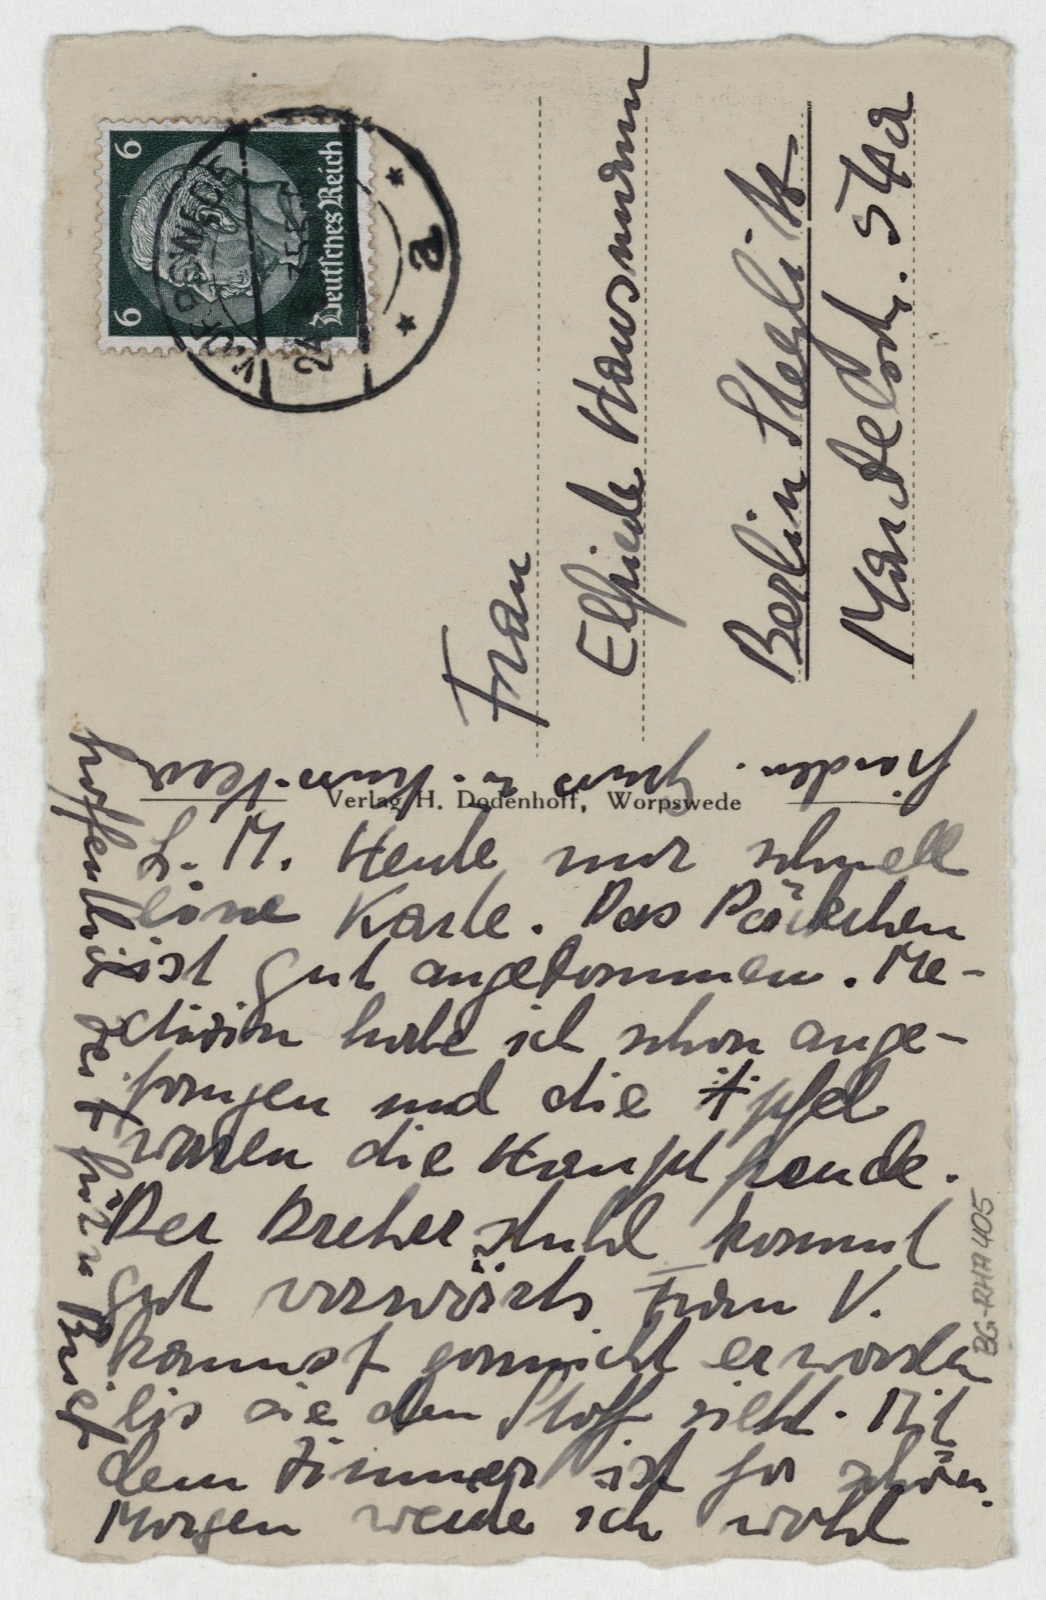 6
6
Deutsches Reich
WORPSWEDE
a
Frau
Elfriede Hausmann
Berlin Steglitz
Mandelstr. 54a
Verlag H. Dodenhoff, Worpswede
L. M. Heute nur schnell
eine Karte. Das Päckchen
ist gut angekommen. Me-
dizin habe ich schon ange-
fangen und die Äpfel
waren die Hauptfreude.
Der Dreherstuhl kommt
gut vorwärts Frau V.
kanns garnicht erwarten
bis sie den Stoff sieht. Mit
dem Zimmer ist ja schön.
Morgen werde ich wohl
hoffentlich den Brief
BG-RHA 405